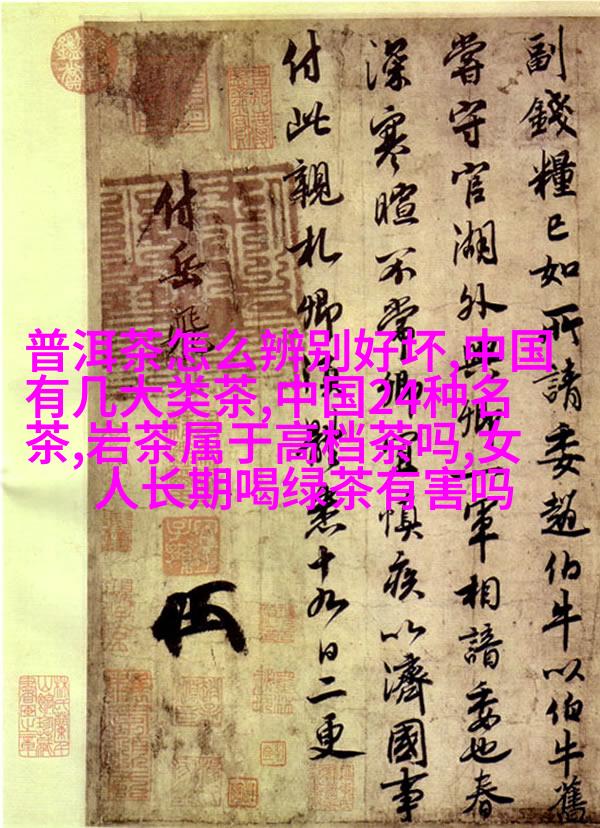 普洱茶怎么辨别好坏,中国
有几大类茶,中国24种名
茶,岩茶属于高档茶吗,女
人长期喝绿茶有害吗
副錢糧已如所請委趙伯牛以伯牛舊
嘗守官湖外與卿一軍相諳委也春
深寒暄不常卿宜慎疾以濟國事
付此親札卿須體悉十九日二更
付岳飛